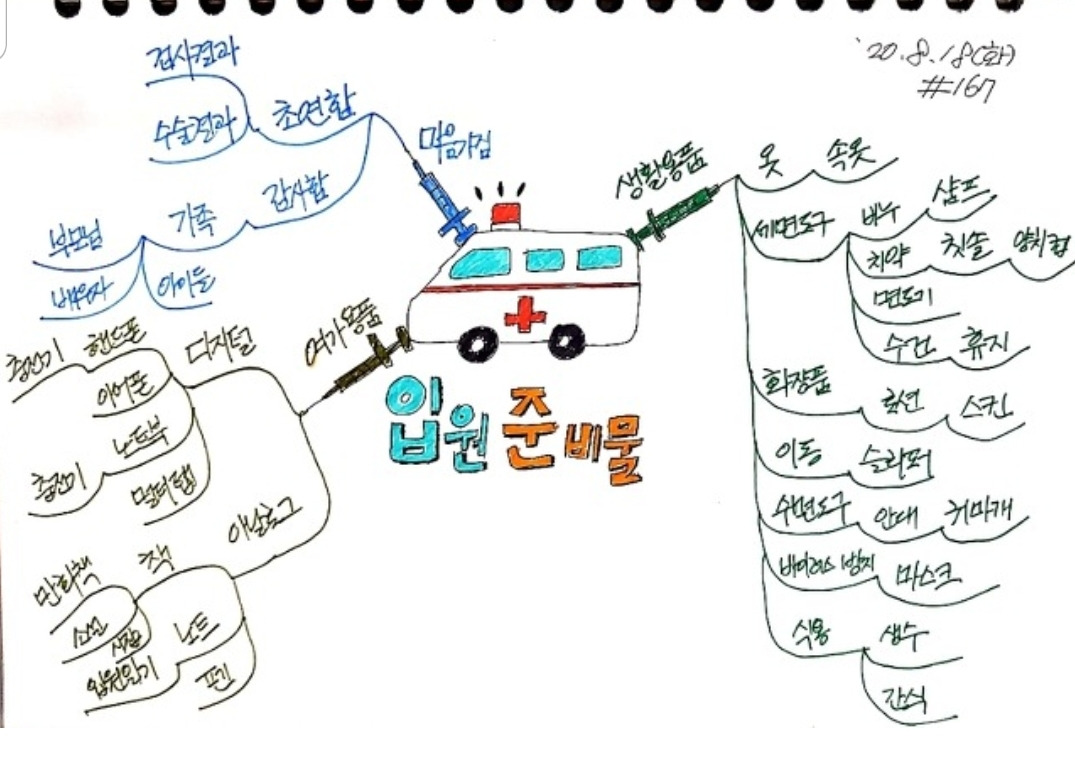 '20.8.18(화)
#167
입원준비물
마음가짐
초연함
검사결과
수술결과
감사함
가족
부모님
배우자
아이들
생활용품
옷 속옷
세면도구 비누 샴프
치약 칫솔 양치컵
면도기
수건 휴지
화장품 로션 스킨
이동 슬리퍼
수면도구 안대 귀마개
바이러스 방지 마스크
식용 생수
간식
여가용품
디지털
핸드폰 충전기
이어폰
노트북 충전기
멀티탭
아날로그
책 만화책
소설
시집
노트 입원일기
펜